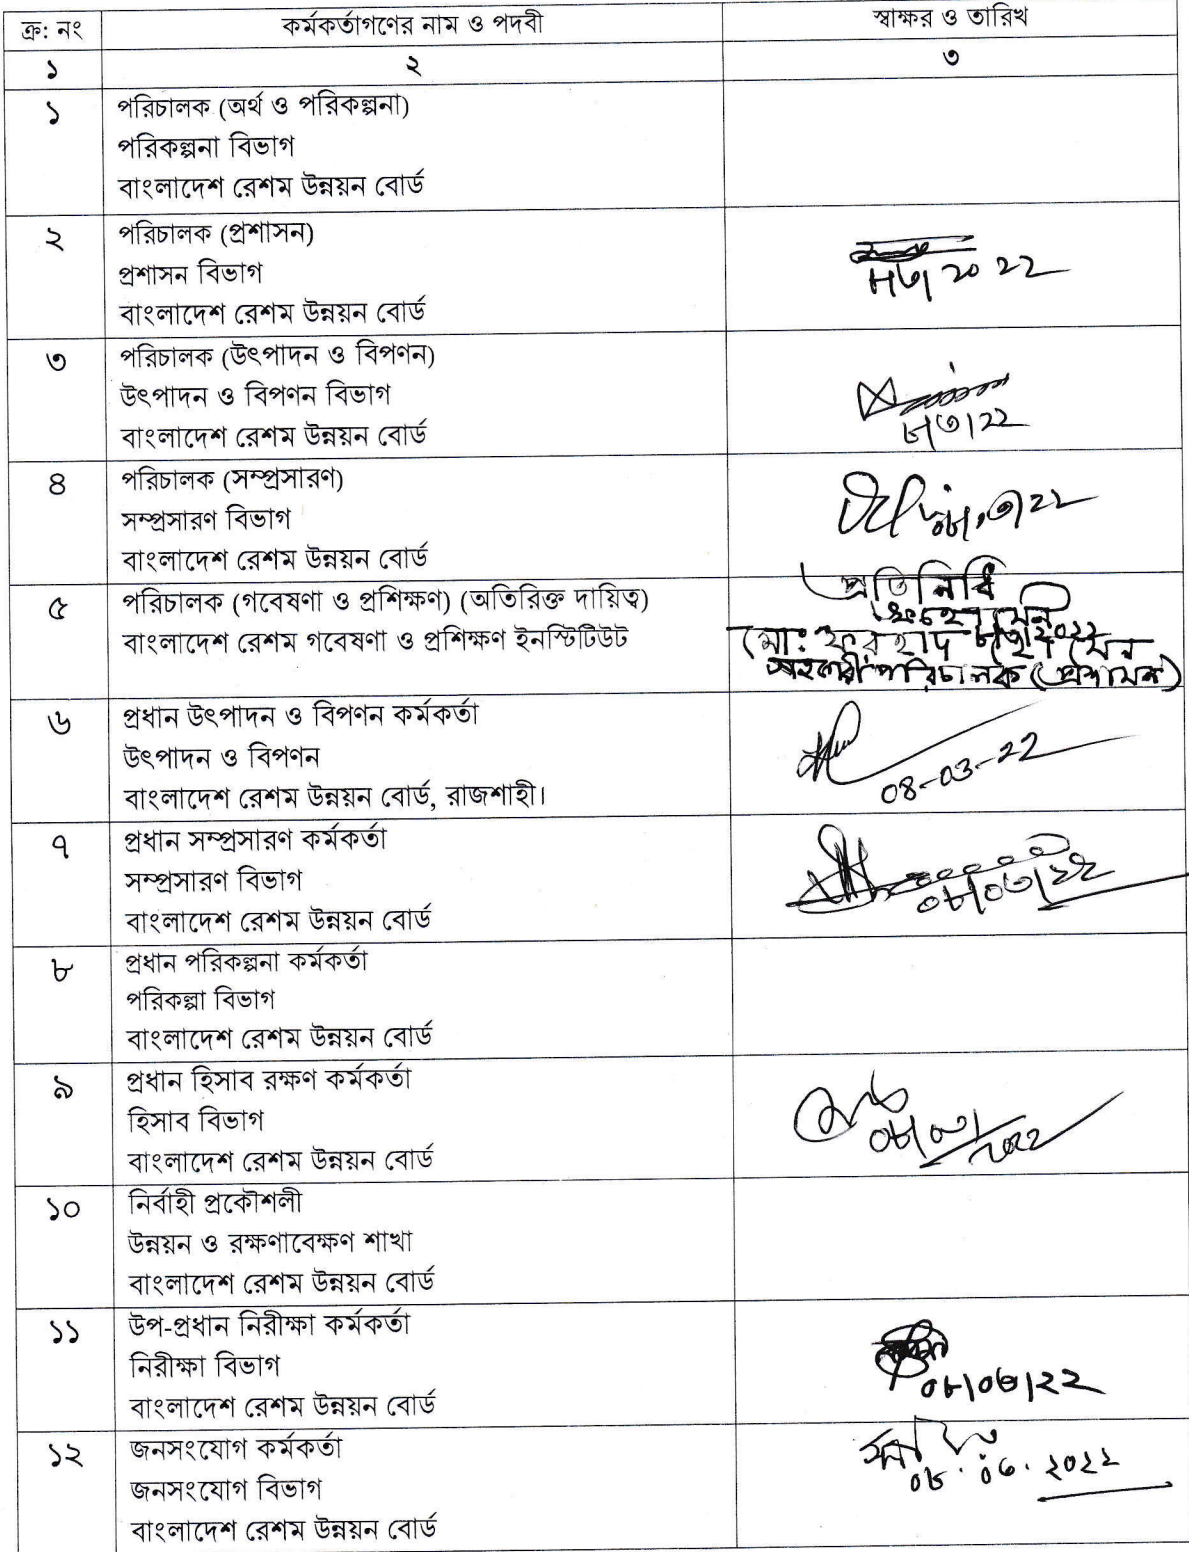 ক্র: নং কর্মকর্তাগণের নাম ও পদবী স্বাক্ষর ও তারিখ
১ ২ ৩
১ পরিচালক (অর্থ ও পরিকল্পনা)
পরিকল্পনা বিভাগ
বাংলাদেশ রেশম উন্নয়ন বোর্ড
২ পরিচালক (প্রশাসন)
প্রশাসন বিভাগ
বাংলাদেশ রেশম উন্নয়ন বোর্ড
৮/৩/২০২২
৩ পরিচালক (উৎপাদন ও বিপণন)
উৎপাদন ও বিপণন বিভাগ
বাংলাদেশ রেশম উন্নয়ন বোর্ড
৮/৩/২২
৪ পরিচালক (সম্প্রসারণ)
সম্প্রসারণ বিভাগ
বাংলাদেশ রেশম উন্নয়ন বোর্ড
০৮/৩/২২
৫ পরিচালক (গবেষণা ও প্রশিক্ষণ) (অতিরিক্ত দায়িত্ব)
বাংলাদেশ রেশম গবেষণা ও প্রশিক্ষণ ইনস্টিটিউট
প্রতিনিধি
৮/৩/২০২২
মো: ফরহাদ হোসেন
সহকারী পরিচালক (প্রশাসন)
৬ প্রধান উৎপাদন ও বিপণন কর্মকর্তা
উৎপাদন ও বিপণন
বাংলাদেশ রেশম উন্নয়ন বোর্ড, রাজশাহী।
08-03-22
৭ প্রধান সম্প্রসারণ কর্মকর্তা
সম্প্রসারণ বিভাগ
বাংলাদেশ রেশম উন্নয়ন বোর্ড
০৮/০৩/২২
৮ প্রধান পরিকল্পনা কর্মকর্তা
পরিকল্পা বিভাগ
বাংলাদেশ রেশম উন্নয়ন বোর্ড
৯ প্রধান হিসাব রক্ষণ কর্মকর্তা
হিসাব বিভাগ
বাংলাদেশ রেশম উন্নয়ন বোর্ড
০৮/০৩/২০২২
১০ নির্বাহী প্রকৌশলী
উন্নয়ন ও রক্ষণাবেক্ষণ শাখা
বাংলাদেশ রেশম উন্নয়ন বোর্ড
১১ উপ-প্রধান নিরীক্ষা কর্মকর্তা
নিরীক্ষা বিভাগ
বাংলাদেশ রেশম উন্নয়ন বোর্ড
০৮/০৩/২২
১২ জনসংযোগ কর্মকর্তা
জনসংযোগ বিভাগ
বাংলাদেশ রেশম উন্নয়ন বোর্ড
০৮.০৩.২০২২